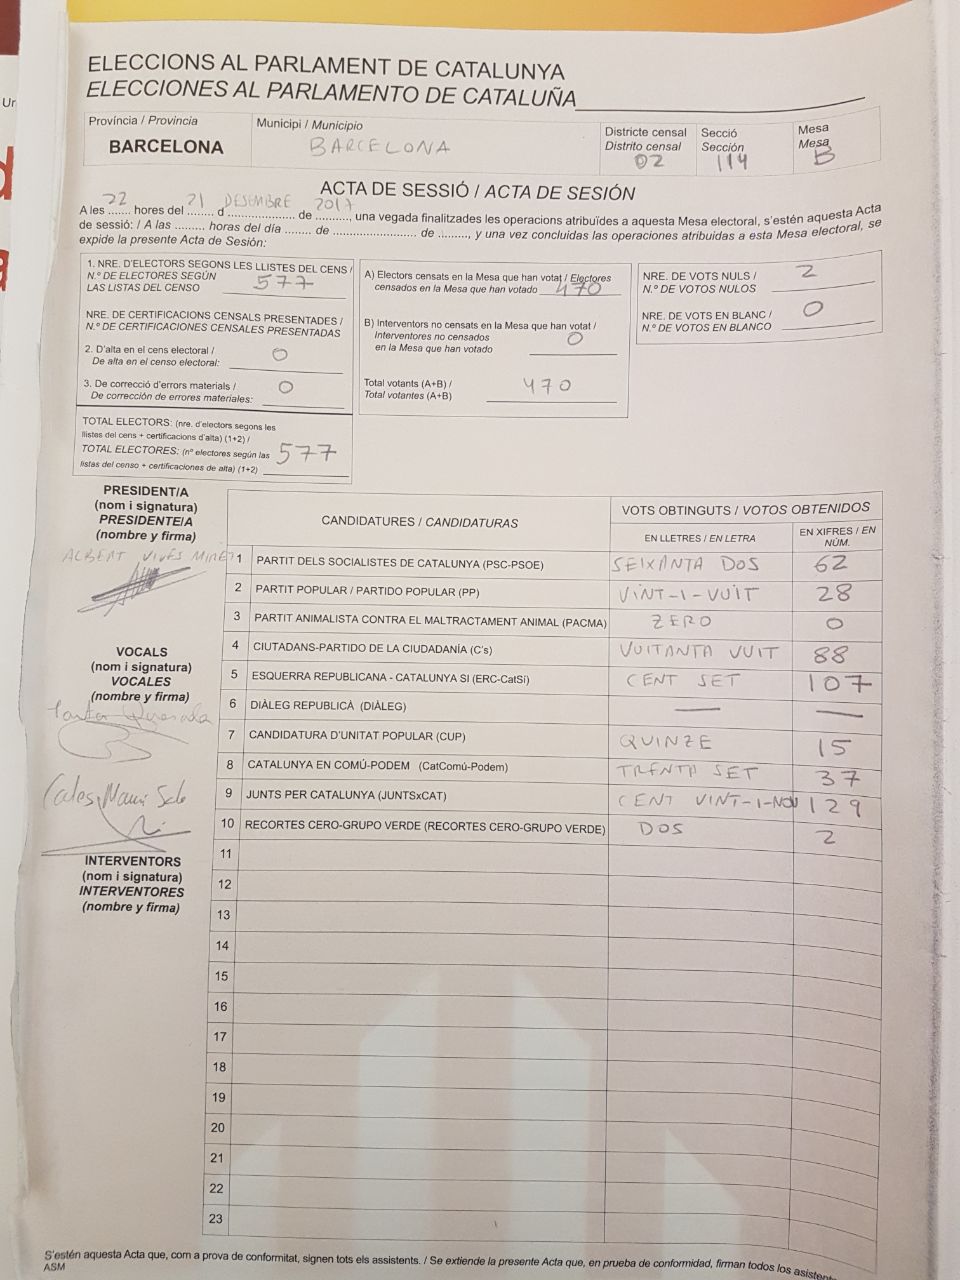 Ur
ELECCIONS AL PARLAMENT DE CATALUNYA
ELECCIONES AL PARLAMENTO DE CATALUÑA
Província / Provincia
BARCELONA
Municipi / Municipio
BARCELONA
Districte censal
Distrito censal
02
Secció
Sección
114
Mesa
Mesa
B
ACTA DE SESSIÓ / ACTA DE SESIÓN
A les 22 hores del 21 d DESEMBRE de 2017, una vegada finalitzades les operacions atribuïdes a aquesta Mesa electoral, s'estén aquesta Acta
de sessió: / A las ......... horas del día ........ de ........................ de ........, y una vez concluidas las operaciones atribuidas a esta Mesa electoral, se
expide la presente Acta de Sesión:
1. NRE. D'ELECTORS SEGONS LES LLISTES DEL CENS /
N.º DE ELECTORES SEGÚN
LAS LISTAS DEL CENSO 577
NRE. DE CERTIFICACIONS CENSALS PRESENTADES /
N.º DE CERTIFICACIONES CENSALES PRESENTADAS
2. D'alta en el cens electoral /
De alta en el censo electoral: 0
3. De correcció d'errors materials /
De corrección de errores materiales: 0
TOTAL ELECTORS: (nre. d'electors segons les
llistes del cens + certificacions d'alta) (1+2) /
TOTAL ELECTORES: (nº electores según las
listas del censo + certificaciones de alta) (1+2) 577
A) Electors censats en la Mesa que han votat / Electores
censados en la Mesa que han votado 470
B) Interventors no censats en la Mesa que han votat /
Interventores no censados
en la Mesa que han votado 0
Total votants (A+B) /
Total votantes (A+B) 470
NRE. DE VOTS NULS /
N.º DE VOTOS NULOS 2
NRE. DE VOTS EN BLANC /
N.º DE VOTOS EN BLANCO 0
PRESIDENT/A
(nom i signatura)
PRESIDENTE/A
(nombre y firma)
ALBERT VIVES
VOCALS
(nom i signatura)
VOCALES
(nombre y firma)
INTERVENTORS
(nom i signatura)
INTERVENTORES
(nombre y firma)
CANDIDATURES / CANDIDATURAS
VOTS OBTINGUTS / VOTOS OBTENIDOS
EN LLETRES / EN LETRA
EN XIFRES / EN
NÚM.
1 PARTIT DELS SOCIALISTES DE CATALUNYA (PSC-PSOE) SEIXANTA DOS 62
2 PARTIT POPULAR / PARTIDO POPULAR (PP) VINT-I-VUIT 28
3 PARTIT ANIMALISTA CONTRA EL MALTRACTAMENT ANIMAL (PACMA) ZERO 0
4 CIUTADANS-PARTIDO DE LA CIUDADANÍA (C's) VUITANTA VUIT 88
5 ESQUERRA REPUBLICANA - CATALUNYA SÍ (ERC-CatSí) CENT SET 107
6 DIÀLEG REPUBLICÀ (DIÀLEG) — —
7 CANDIDATURA D'UNITAT POPULAR (CUP) QUINZE 15
8 CATALUNYA EN COMÚ-PODEM (CatComú-Podem) TRENTA SET 37
9 JUNTS PER CATALUNYA (JUNTSxCAT) CENT VINT-I-NOU 129
10 RECORTES CERO-GRUPO VERDE (RECORTES CERO-GRUPO VERDE) DOS 2
11
12
13
14
15
16
17
18
19
20
21
22
23
S'estén aquesta Acta que, com a prova de conformitat, signen tots els assistents. / Se extiende la presente Acta que, en prueba de conformidad, firman todos los
ASM